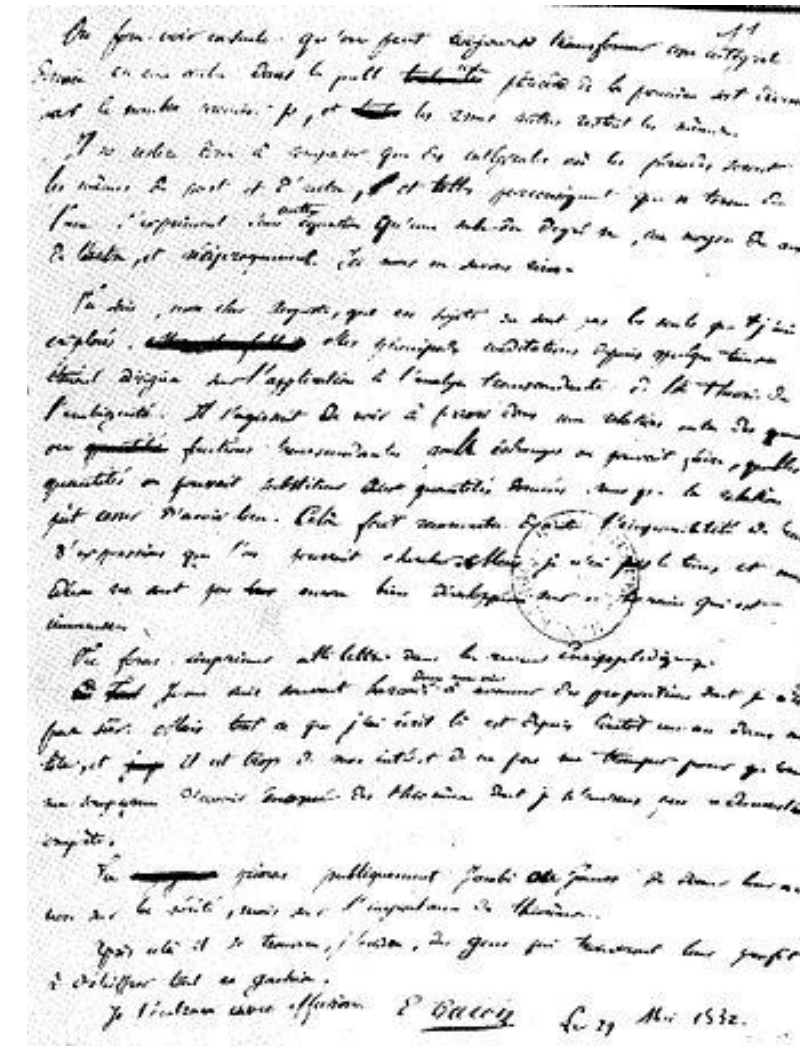 11
On fera voir ensuite qu'on peut toujours transformer une intégrale
donnée en une autre dans laquelle une période de la première soit divisée
par le nombre premier p, et les 2n-1 autres restent les mêmes.
Il ne restera donc à comparer que des intégrales où les périodes seront
les mêmes de part et d'autre, et telles par conséquent que n termes de
l'une s'expriment sans autre équation qu'une seule du degré n, au moyen de
de l'autre, et réciproquement. Ici nous ne savons rien.
Tu sais, mon cher Auguste, que ces sujets ne sont pas les seuls que j'aie
explorés. Mes principales méditations depuis quelque temps
étaient dirigées sur l'application à l'analyse transcendante de la théorie de
l'ambiguité. Il s'agissait de voir à priori dans une relation entre des
ou fonctions transcendantes quels échanges on pouvait faire, quelles
quantités on pouvait substituer aux quantités données sans que la relation
pût cesser d'avoir lieu. Cela fait reconnaitre l'impossibilité de
d'expressions que l'on pourrait chercher. Mais je n'ai pas le tems et mes
idées ne sont pas encore bien développées sur ce terrain qui est
immense.
Tu feras imprimer cette lettre dans la revue Encyclopédique.
Je me suis souvent hasardé dans ma vie à avancer des propositions dont je
pas sûr. Mais tout ce que j'ai écrit là est depuis bientôt un an dans ma
tête, et il est trop de mon intérêt de ne pas me tromper pour qu'on
me soupçonne d'avoir énoncé des théorèmes dont je n'aurais pas la démonstration
complète.
Tu prieras publiquement Jacobi ou Gauss de donner leur avis
non sur la vérité, mais sur l'importance des théorèmes.
Après cela il se trouvera, j'espère, des gens qui trouveront leur profit
à déchiffrer tout ce gachis.
Je t'embrasse avec effusion. E Galois Le 29 Mai 1832.